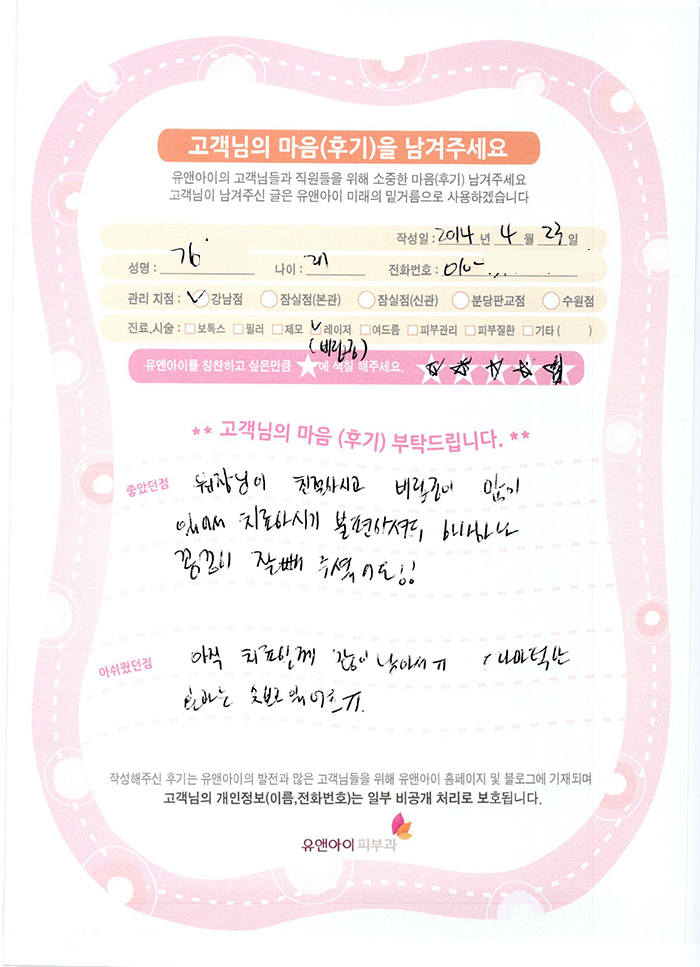 고객님의 마음(후기)을 남겨주세요
유앤아이의 고객님들과 직원들을 위해 소중한 마음(후기) 남겨주세요
고객님이 남겨주신 글은 유앤아이 미래의 밑거름으로 사용하겠습니다
작성일 : 2014 년 4 월 23 일
성명 : 김 나이 : 전화번호 : 010-
관리 지점 : 강남점 잠실점(본관) 잠실점(신관) 분당판교점 수원점
진료,시술 : 보톡스 필러 제모 레이저 여드름 피부관리 피부질환 기타 ( )
(비립종)
유앤아이를 칭찬하고 싶은만큼 ★에 색칠 해주세요.
** 고객님의 마음 (후기) 부탁드립니다. **
좋았던점 원장님이 친절하시고 비립종이 많이
있어서 치료하시기 불편하셔도 하나하나
꼼꼼히 잘 빼 주셨어요!!
아쉬웠던점 아직 치료단계 남아서 ㅠ
ㅠ.
작성해주신 후기는 유앤아이의 발전과 많은 고객님들을 위해 유앤아이 홈페이지 및 블로그에 기재되며
고객님의 개인정보(이름,전화번호)는 일부 비공개 처리로 보호됩니다.
유앤아이 피부과